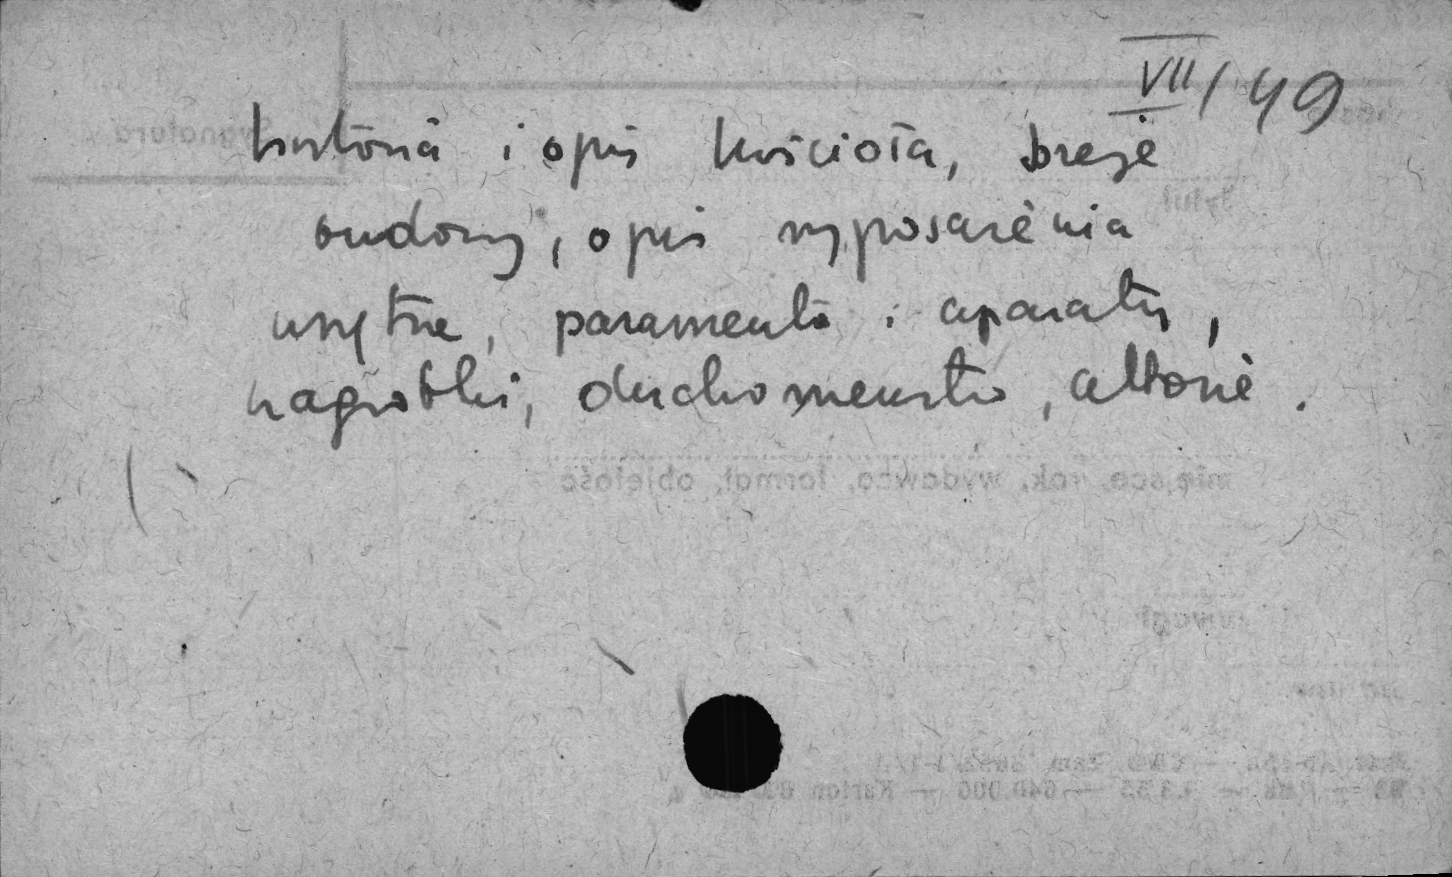 VII/49
historia i opis kościoła, dzieje
budowy, opis wyposażenia
wnętrza, paramenta i aparaty,
nagrobki, duchowieństwo, altarie.
Sygnatura
tytuł
miejsce, rok, wydawca, format, objętość
uwagi